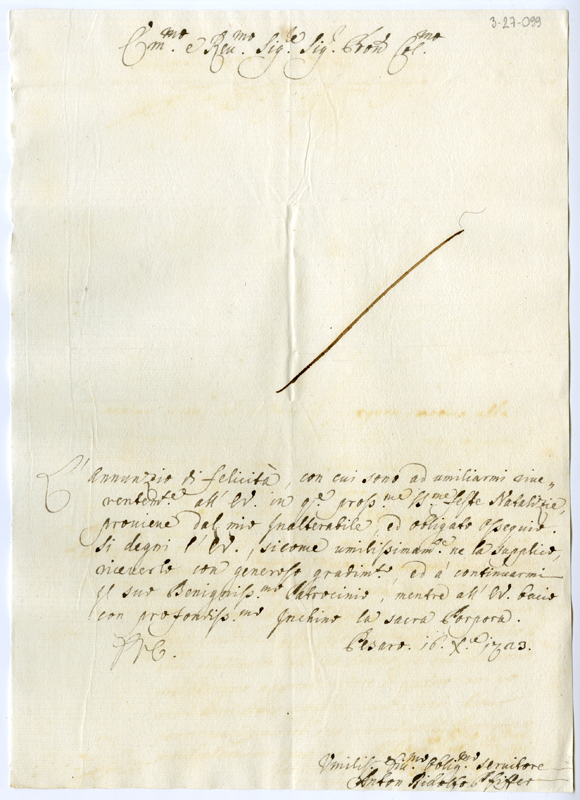 3-27-099
Em.mo e Reu.mo Sig.re Sig.r Pron Col.mo
L'annunzio di felicità, con cui sono ad umiliarmi riue„
rentem.te all' EV. in q.te pross.me SS.me feste Natalizie,
prouiene dal mio Inalterabile, ed obligato ossequio.
Si degni l'EV., sicome umilissimam.te ne la supplico,
riceuerlo con generoso gradim.to, ed à continuarmi
il suo Benigniss.mo Patrocinio, mentre all' EV. bacio
con profondiss.mo Inchino la sacra Porpora.
Pesaro. 16. X.re 1723.
Umilis. Diu.mo Oblig.mo seruitore
Anton Ridolfo Pfiffer